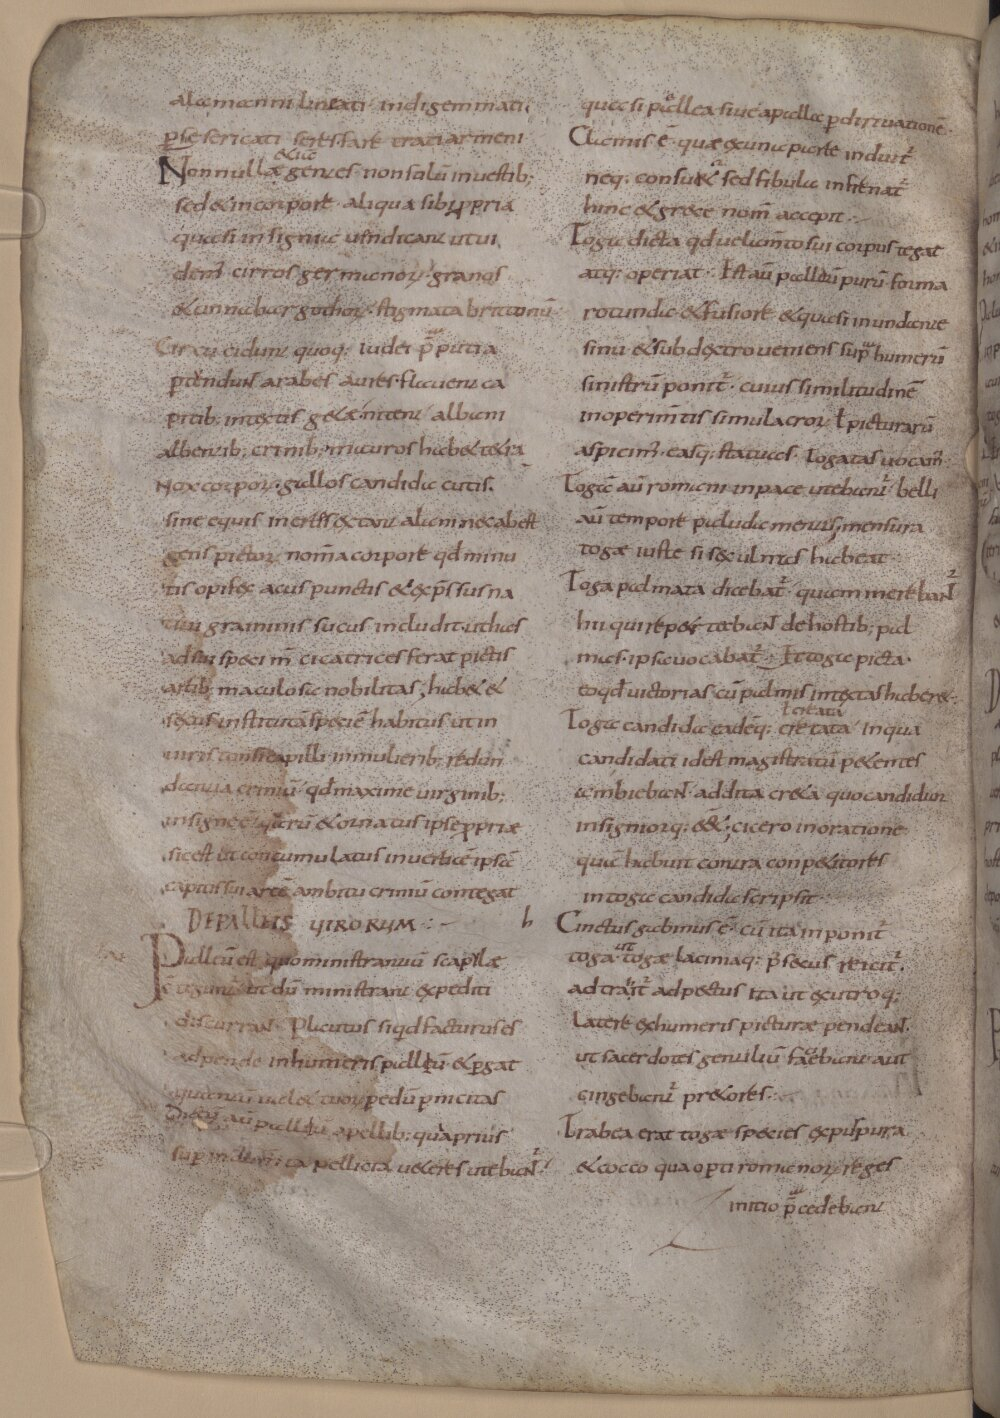 alamanni lineati indigemmati
ꝑse sericati seres fare traciarmeni
Nonnullæ gentes non solū in uestib;
& iā
sed & in corpore aliqua sibi ꝓpria
quasi insignia uindicant ut ui
dem̄ cirros germanoꝝ granos
& cinnabar gothoꝝ stigmata brittonū
Circūcidunt quoq; iudei p̄putia
ꝑtundunt arabes aures flauent ca
pitib; intectis g&æ nitent albani
albentib; crinib; mauros hab& t&ra
Nox corpoꝝ gallos candida cutis
sine equis inertes extant alani nec abest
gens pictoꝝ nom̄ a corpore qd minu
tis opifex acus punctis & exp̄ssus na
tiui graminis sucus includit ut has
ad sui specim̄ cicatrices ferat pictis
artib; maculosa nobilitas hab& &
sexus institutā speciē habitus ut in
uiris tonsi capilli in mulierib; redun
dantia criniū qd maxime uirginib;
insigne ē quarū & ornatus ipse ꝓpriæ
sic est ut concumulatus in uerticē ipsā
capitis sui arcē ambitu criniū contegat
DE PALLIIS VIRORUM
Palleū est quo ministrantiū scapulæ
c teguntur ut dū ministrant expediti
discurrant Plautus si qd facturus es
adpende in humeris palleū & ꝑgat
quantū ualet tuoꝝ pedū pnicitas
Dictū aū palleū a pellib; qua prius
suꝑ indum̄ta pellicia ueteres utebant̄
quasi pallea siue a palla ꝑ diriuationē
Clamis ē quæ ex una parte induit̄
neq; consu& sed fibula infrenat̄
hinc & grece nom̄ accepit
Toga dicta qd uelam̄to sui corpus tegat
atq; operiat Est aū palleū purū forma
rotunda & fusiore & quasi inundante
sinu & sub dextro ueniens supra humerū
sinistrū ponit̄ cuius similitudinē
in operim̄tis simulacroꝝ ł picturarū
aspicim̄ easq; statuas togatas uocam̄
Togā aū romani in pace utebant̄ belli
aū tempore paludamentis mensura
togæ iuste si sex ulnas habeat
Toga palmata dicebat̄ quam merebant̄
hii qui reportabant de hostib; pal
mas ipsa uocabat̄ Et toga picta
eo qd uictorias cū palmis intextas haber&
ł cretata
Toga candida eadēq; cretata in qua
candidati id est magistratū petentes
ambiebant addita creta quo candidior
insigniorq; eēt cicero in oratione
quā habuit contra conpetitores
in toga candida scripsit
h Cinctus gabinus ē cū ita inponit̄
toga ut togæ lacinia q; p̄ secus reicit̄
ad trait̄ ad pectus ita ut ex utroq;
latere ex humeris picturæ pendeant
ut sacerdotes gentiliū faciebant aut
cingebant̄ pretores
Trabea erat togæ species ex purpura
& cocco qua operti romanoꝝ reges
initio p̄cedebant